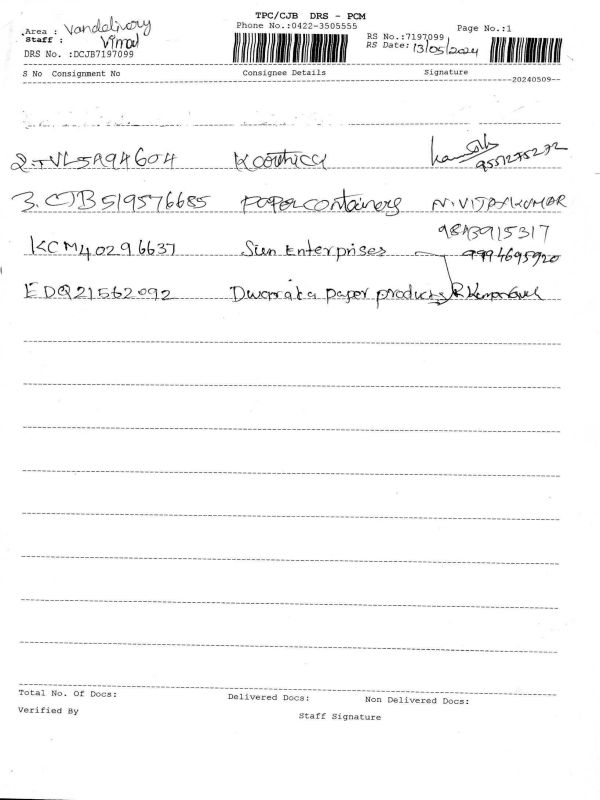 TPC/CJB DRS - PCM
Area : Vandelivery Phone No.:0422-3505555 Page No.:1
Staff : Vimal RS No.:7197099
DRS No. :DCJB7197099 RS Date: 13/05/2024
S No Consignment No Consignee Details Signature
20240509
2. TVL5A94604 Karthica
9551275272
3. CJB519576685 PAPER containers N. VIJAYAKUMAR
9843915317
KCM40296637 Sun Enterprises 9994695920
EDQ21562092 Dwaraka paper products
Total No. Of Docs: Delivered Docs: Non Delivered Docs:
Verified By Staff Signature